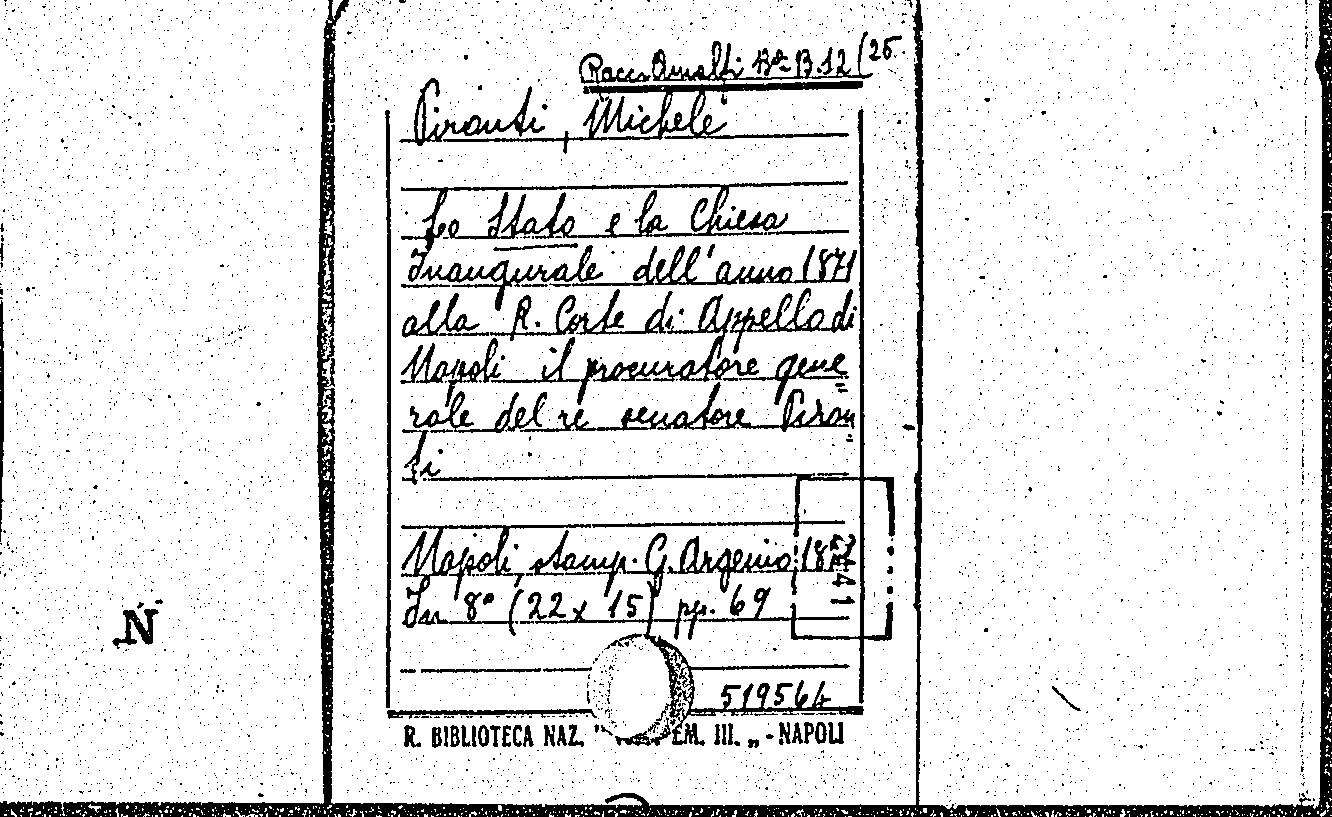 Racc. Amalfi Bª B.12 (25.
Pironti, Michele
Lo Stato e la Chiesa
Inaugurale dell'anno 1871
alla R. Corte di Appello di
Napoli il procuratore gene=
rale del re senatore Piron=
ti
Napoli, stamp. G. Argenio, 187
In 8° (22 x 15) pp. 69
N
519564
R. BIBLIOTECA NAZ. " EM. III. „ - NAPOLI